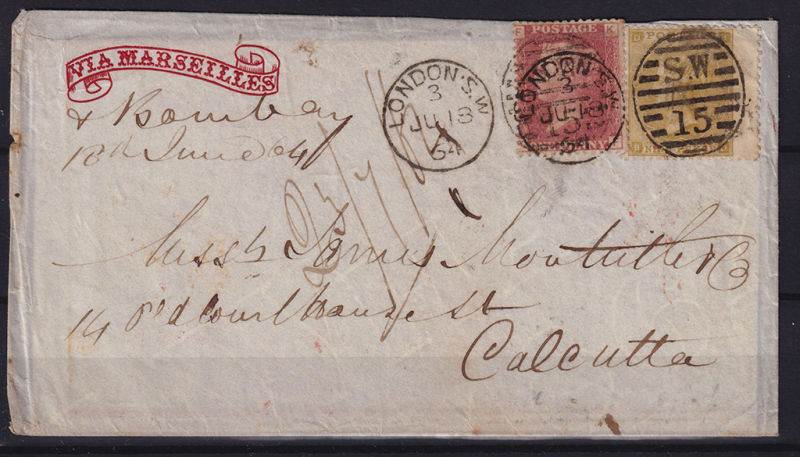 VIA MARSEILLES
& Bombay
18th June 64
LONDON·S.W
3
JU 18
64
POSTAGE
LONDON·S.W
3
JU 18
64
S.W
15
Messrs James & Co
14 Old Court House St
Calcutta